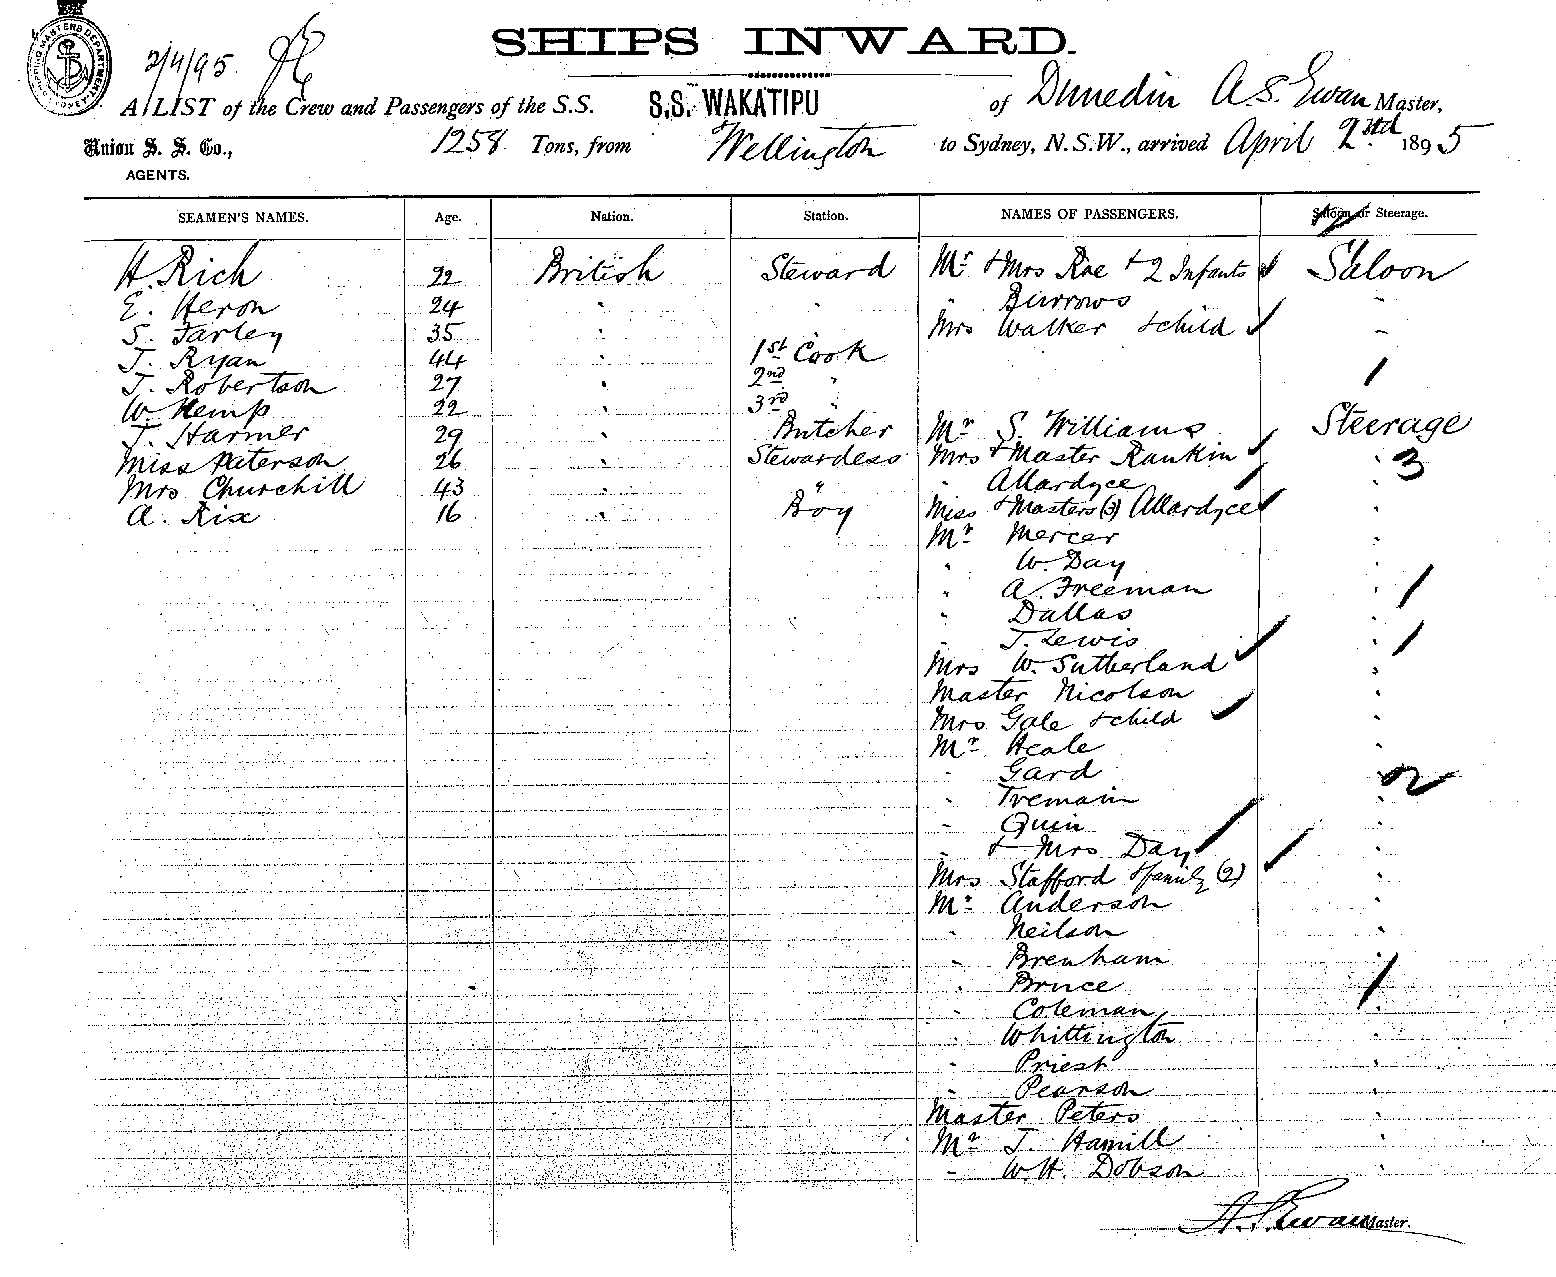 SHIPS INWARD.
2/4/95
A LIST of the Crew and Passengers of the S.S. S.S. WAKATIPU of Dunedin A S. Ewan Master,
Union S. S. Co., 1258 Tons, from Wellington to Sydney, N.S.W., arrived April 2nd 1895
AGENTS.
SEAMEN'S NAMES. Age. Nation. Station. NAMES OF PASSENGERS. Saloon or Steerage.
H. Rich 22 British Steward Mr & Mrs Roe & 2 Infants Saloon
E. Heron 24 " " " Burrows "
S. Farley 35 " " Mrs Walker & child "
J. Ryan 44 " 1st Cook
T. Robertson 27 " 2nd " 1
W. Kemp 22 " 3rd "
J. Harmer 29 " Butcher Mr S. Williams Steerage
Miss Paterson 26 " Stewardess Mrs & Master Rankin " 3
Mrs Churchill 43 " " " Allardyce "
A. Rix 16 " Boy Miss & Masters (3) Allardyce "
Mr Mercer "
" W. Day "
" A. Freeman " 1
" Dallas "
" J. Lewis " 1
Mrs W. Sutherland "
Master Nicolson "
Mrs Gale & child "
Mr Heale "
" Gard 2
" Tremain "
" Quin "
" & Mrs Day "
Mrs Stafford & family (2) "
Mr Anderson "
" Neilson "
" Brenham "
" Bruce 1
" Coleman "
" Whittington "
" Priest "
" Pearson "
Master Peters "
Mr J. Hamill "
" W. H. Dobson "
A. S. Ewan Master.